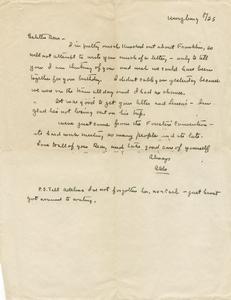 8/25
Dear
I'm pretty much knocked out about Franklin, so
will not attempt to write you much of a letter, - only to tell
you I am thinking of you and wish we could have been
together for your birthday. I didn't call you yesterday because
we were on the train all day and I had no chance.
It was good to get your letter and
glad he's not losing out on his trip.
just came from the Convention -
it's hard work meeting so many people and it's late.
Love to all of you Dear, and take good care of yourself
Always
P.S. Tell I've not forgotten her, - just haven't
got around to writing.